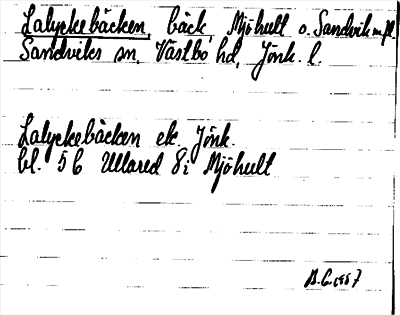 Lalyckebäcken, bäck, Mjöhult o. Sandvik m.fl.
Sandviks sn, Västbo hd, Jönk. l.
Lalyckebäcken ek. Jönk.
bl. 5C Ullared 8i Mjöhult
B.G. 1957